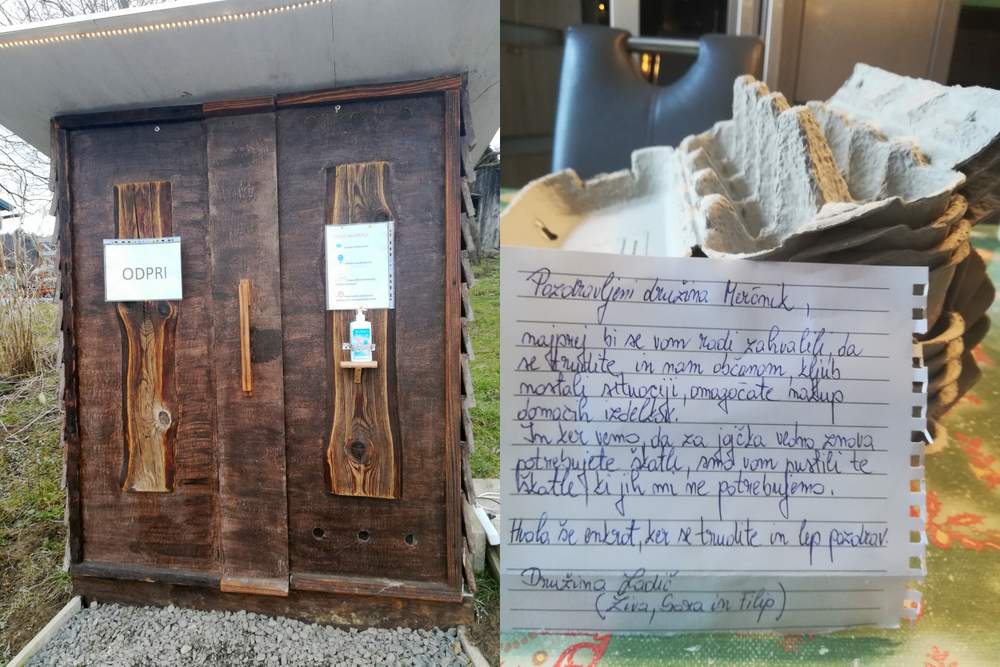 ODPRI
Pozdravljeni družina Merčnik,
najprej bi se vam radi zahvalili, da
se trudite, in nam občanom, kljub
nastali situaciji, omogočate nakup
domačih izdelkov.
In ker vemo, da za jajčka vedno znova
potrebujete škatle, smo vam pustili te
škatle, ki jih mi ne potrebujemo.
Hvala še enkrat, ker se trudite in lep pozdrav.
Družina Ladič
(Živa, Sara in Filip)